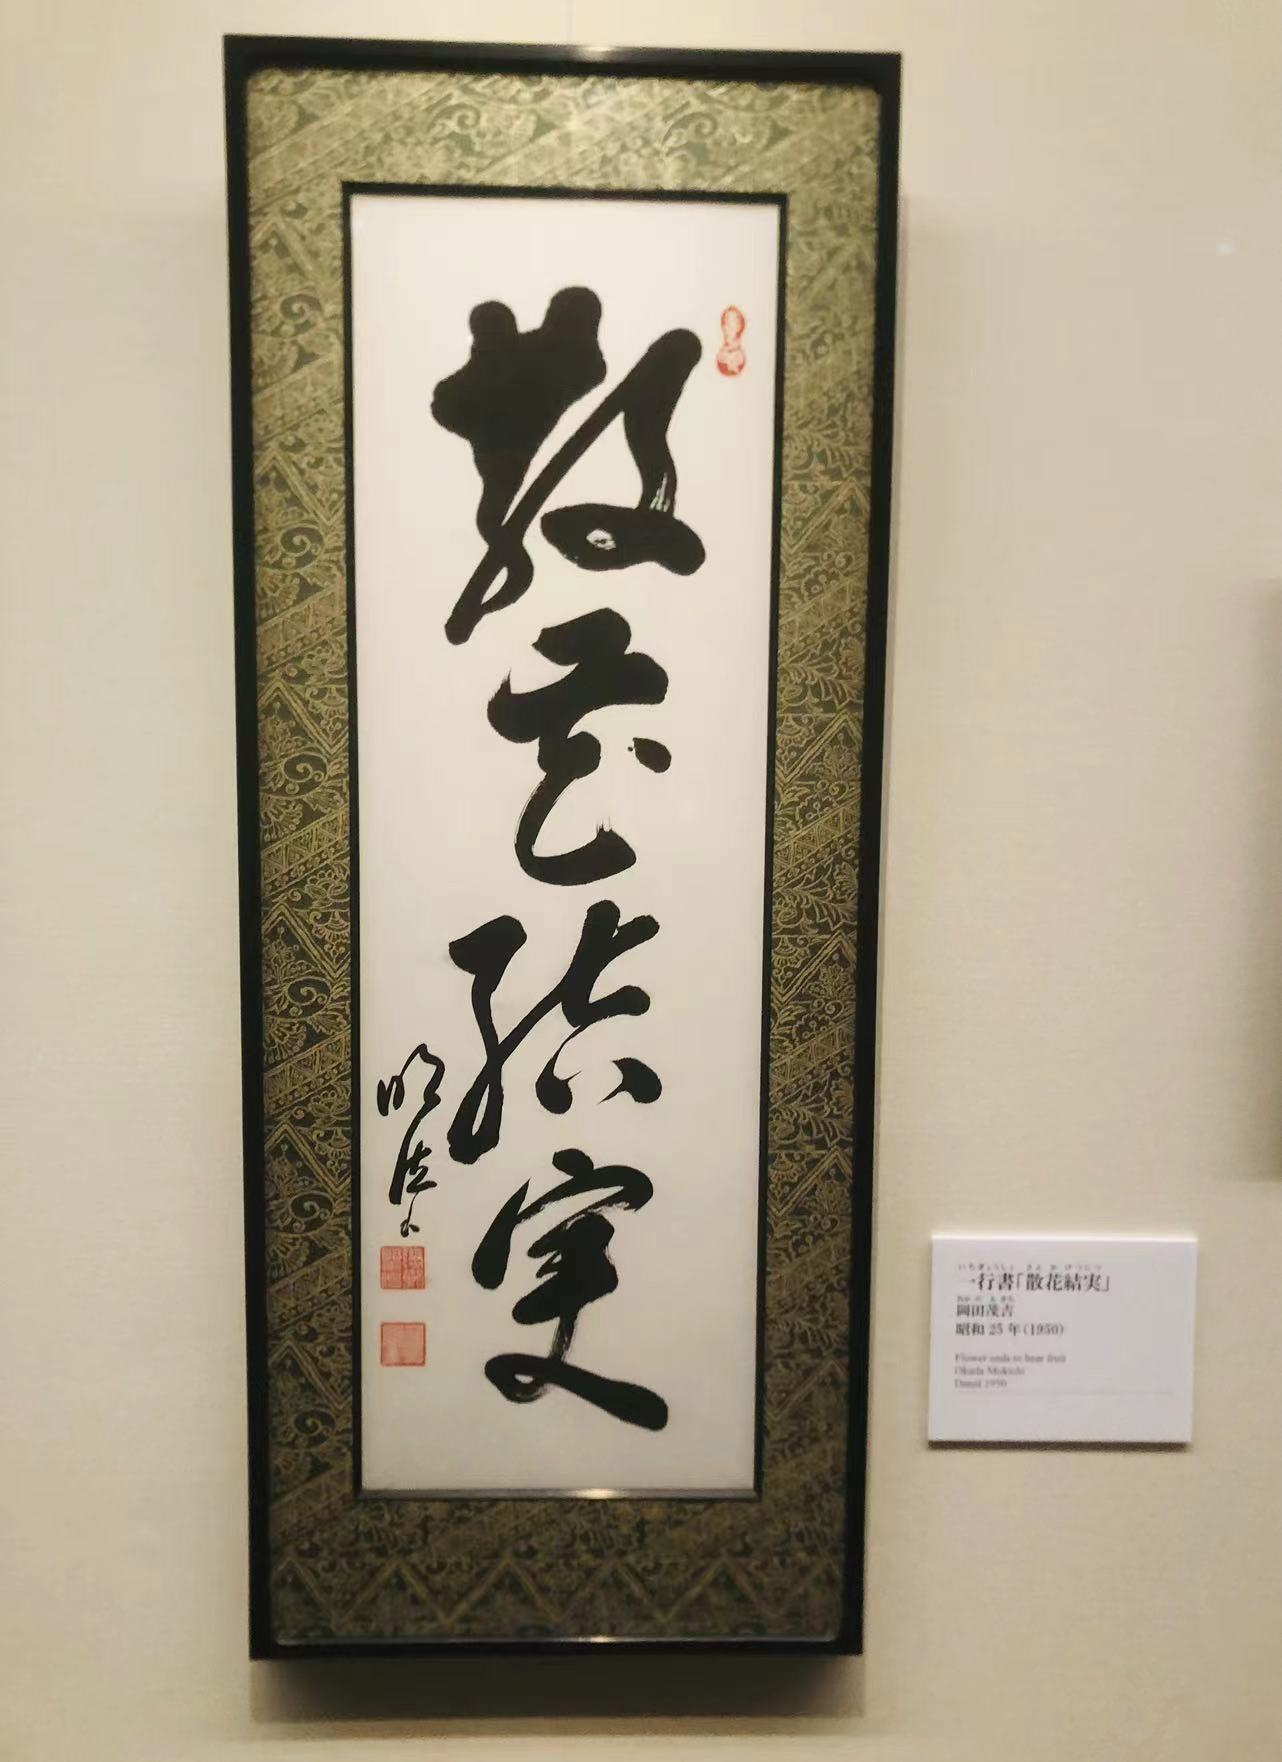 散花結実
いちぎょうしょ さん か けつじつ
一行書「散花結実」
おか だ も きち
岡田茂吉
昭和 25 年(1950)
Flower ends to bear fruit
Okada Mokichi
Dated 1950